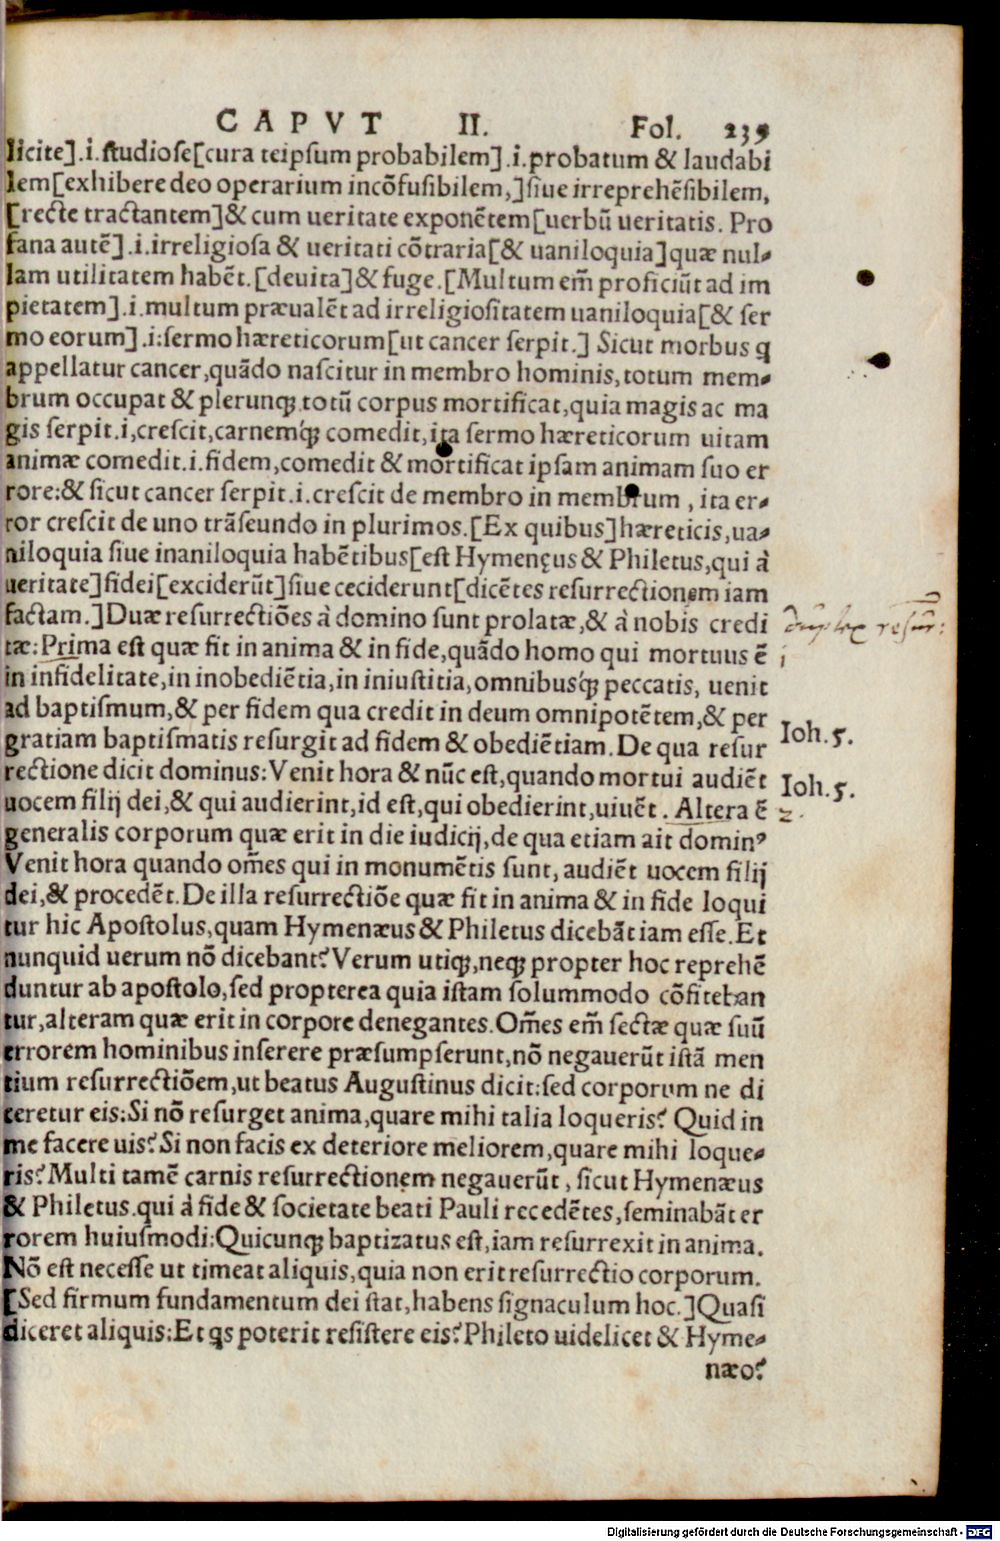 CAPVT II. Fol. 239
licite].i.ſtudioſe[cura teipſum probabilem].i.probatum & laudabi
lem[exhibere deo operarium incõfuſibilem,]ſiue irreprehẽſibilem,
[recte tractantem]& cum ueritate exponẽtem[uerbũ ueritatis. Pro
fana autẽ].i.irreligioſa & ueritati cõtraria[& uaniloquia]quæ nul-
lam utilitatem habẽt.[deuita]& fuge.[Multum em̃ proficiũt ad im
pietatem].i.multum præualẽt ad irreligioſitatem uaniloquia[& ſer
mo eorum].i:ſermo hæreticorum[ut cancer ſerpit.] Sicut morbus q
appellatur cancer,quãdo naſcitur in membro hominis,totum mem-
brum occupat & plerunqꝫ totũ corpus mortificat,quia magis ac ma
gis ſerpit.i,creſcit,carnemq́ꝫ comedit,ita ſermo hæreticorum uitam
animæ comedit.i.fidem,comedit & mortificat ipſam animam ſuo er
rore:& ſicut cancer ſerpit.i.creſcit de membro in membrum , ita er-
ror creſcit de uno trãſeundo in plurimos.[Ex quibus]hæreticis,ua-
niloquia ſiue inaniloquia habẽtibus[eſt Hymenęus & Philetus,qui à
ueritate]fidei[exciderũt]ſiue ceciderunt[dicẽtes reſurrectionem iam
factam.]Duæ reſurrectiões à domino ſunt prolatæ,& à nobis credi
tæ:Prima eſt quæ fit in anima & in fide,quãdo homo qui mortuus ẽ
in infidelitate,in inobediẽtia,in iniuſtitia,omnibusq́ꝫ peccatis, uenit
ad baptiſmum,& per fidem qua credit in deum omnipotẽtem,& per
gratiam baptiſmatis reſurgit ad fidem & obediẽtiam.De qua reſur
rectione dicit dominus:Venit hora & nũc eſt,quando mortui audiẽt
uocem filij dei,& qui audierint,id eſt,qui obedierint,uiuẽt . Altera ẽ
generalis corporum quæ erit in die iudicij,de qua etiam ait dominꝰ
Venit hora quando om̃es qui in monumẽtis ſunt, audiẽt uocem filij
dei,& procedẽt.De illa reſurrectiõe quæ fit in anima & in fide loqui
tur hic Apoſtolus,quam Hymenæus & Philetus dicebãt iam eſſe.Et
nunquid uerum nõ dicebant?Verum utiqꝫ,neqꝫ propter hoc reprehẽ
duntur ab apoſtolo,ſed propterea quia iſtam ſolummodo cõfiteban
tur,alteram quæ erit in corpore denegantes.Om̃es em̃ ſectæ quæ ſuũ
errorem hominibus inſerere præſumpſerunt,nõ negauerũt iſtã men
tium reſurrectiõem,ut beatus Auguſtinus dicit:ſed corporum ne di
ceretur eis:Si nõ reſurget anima,quare mihi talia loqueris? Quid in
me facere uis?Si non facis ex deteriore meliorem,quare mihi loque-
ris?Multi tamẽ carnis reſurrectionem negauerũt, ſicut Hymenæus
& Philetus.qui à fide & ſocietate beati Pauli recedẽtes,ſeminabãt er
rorem huiuſmodi:Quicunqꝫ baptizatus eſt,iam reſurrexit in anima.
Nõ eſt neceſſe ut timeat aliquis,quia non erit reſurrectio corporum.
[Sed firmum fundamentum dei ſtat,habens ſignaculum hoc.]Quaſi
diceret aliquis:Et qs poterit reſiſtere eis?Phileto uidelicet & Hyme-
næo?
duplex reſur:
1
Ioh.5.
Ioh.5.
2.
Digitalisierung gefördert durch die Deutsche Forschungsgemeinschaft - DFG